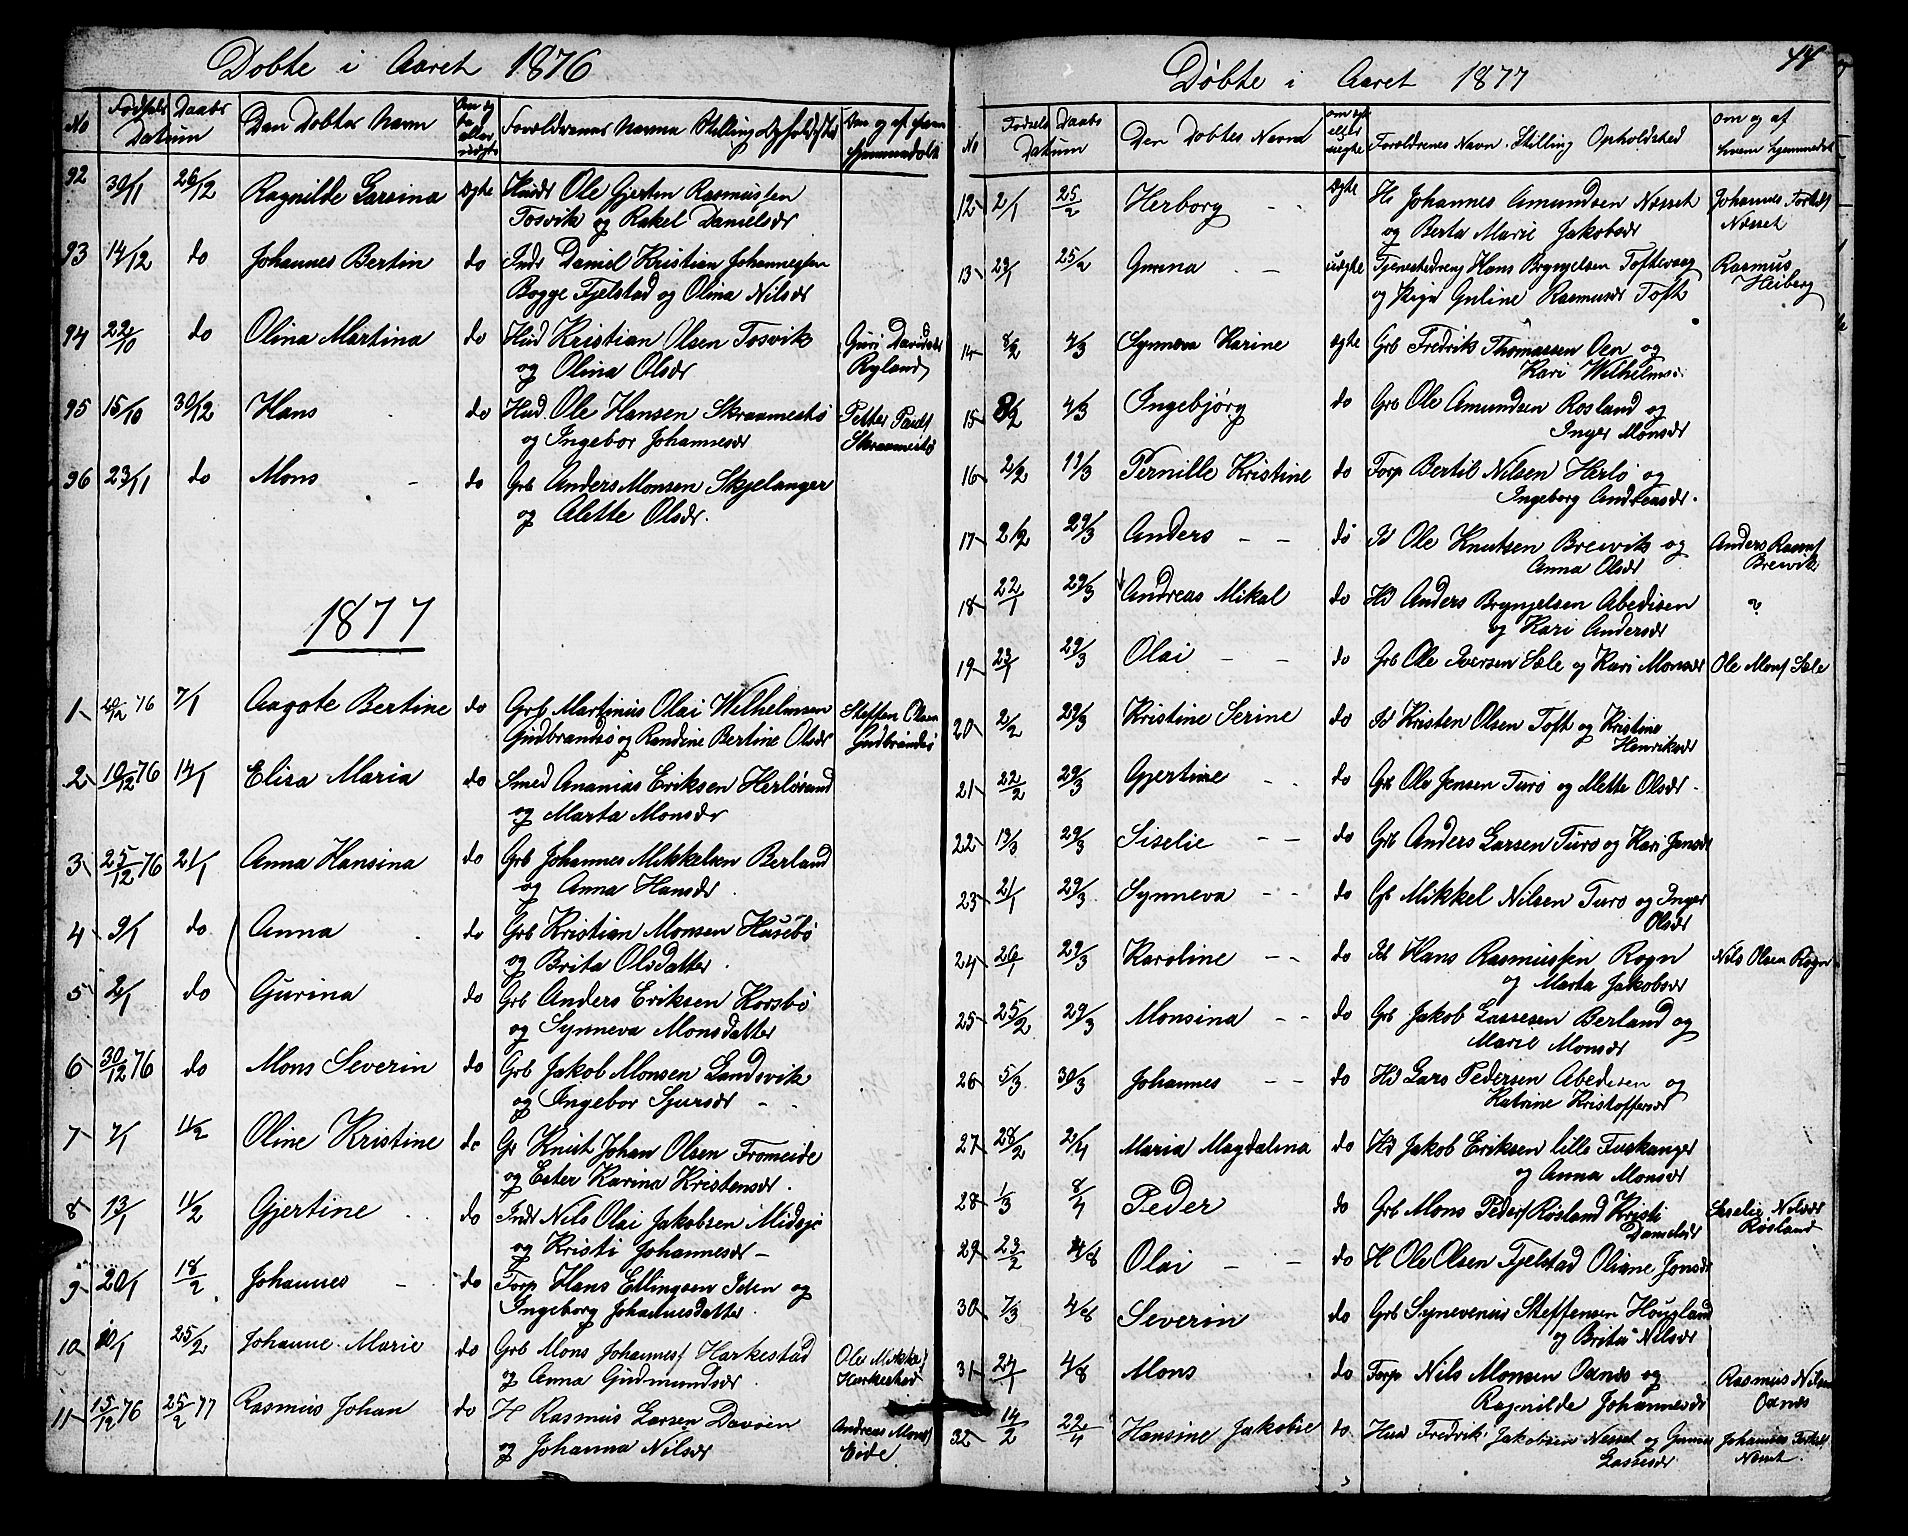 Døbte i Aaret 1876
No Fødsels Daabs Datum Den Døbtes Navn Om ægte eller uægte Forældrenes Navne Stilling Opholdsted Om og af hvem hjemmedøbt
92 30/11 26/12 Ragnilde Larsina ægte Huusm Ole Gjerten Rasmussen
Tosvik og Rakel Danielsdr
93 14/12 do Johannes Bertin do Inds Daniel Kristian Johannessen
Bogge Fjelstad og Olina Nilsdr
94 22/10 do Olina Martina do Husd Kristian Olsen Tosvik Guri Davidsdr
og Olina Olsdr Ryland
95 15/10 30/12 Hans do Husd. Ole Hansen Skraamestø Petter
og Ingebor Johannesdr Skraamestø
96 23/11 do Mons do Grb Anders Monsen Skjelanger
og Alette Olsdr.
1877
1 20/12 76 7/1 Aagote Bertine do Grb Martinius Olai Wilhelmsen Steffen Olsen
Gudbrandsø og Randine Bertine Olsdr Gudbrandsø
2 10/12 76 14/1 Elisa Maria do Smed Ananias Eriksen Herløsund
og Marta Monsdr
3 25/12 76 21/1 Anna Hansina do Grb Johannes Mikkelsen Berland
og Anna Hansdr.
4 9/1 do Anna do Grb Kristian Monsen Husebø
og Brita Olsdatter.
5 2/1 do Gurina do Grb Anders Eriksen Korsbø
og Synneva Monsdatter
6 30/12 76 do Mons Severin do Grb Jakob Monsen Landsvik
og Ingebor Sjursdr
7 7/1 11/2 Oline Kristine do Gr Knut Johan Olsen Fromeide
og Ester Karina Kristensdr.
8 13/1 11/2 Gjertine do Inds Nils Olai Jakobsen Midsje
og Kristi Johannesdr
9 20/1 18/2 Johannes do Torp Hans Ellingsen Iden og
Ingeborg Johannesdatter.
10 20/1 25/2 Johanne Marie do Grb Mons Johannes/ Harkestad Ole Mikkel/
og Anna Gudmundsdr. Harkestad
11 15/12 76 25/2 77 Rasmus Johan do H Rasmus Larsen Davøen Andreas Mons/
og Johanna Nilsdr Eide
44
Døbte i Aaret 1877
No Fødsels Daabs Datum Den Døbtes Navn om ægte eller uægte Forældrenes Navn. Stilling Opholdsted om og af hvem hjemmedøbt
12 2/1 25/2 Herborg ægte H Johannes Amundsen Nesset Johannes Torkels/
og Berta Marie Jakobsdr Nesset
13 23/1 25/2 Gurena uægte Tjenestedreng Hans Brynjelsen Toftevaag Rasmus
og Pige Guline Rasmusdr Toft Heiberg
14 8/2 4/3 Synneva Karine ægte Grb Fredrik Thomassen Oen og
Kari Wilhelmsdr
15 8/2 4/3 Ingebjørg do Grb Ole Amundsen Rosland og
Inger Monsdr
16 2/2 11/3 Pernille Kristine do Torp Bertil Nilsen Herlø og
Ingeborg Andreasdr.
17 21/2 29/3 Anders do Ole Knutsen Brevik og Anders Rasm/
Anna Olsdr Brevik
18 22/1 29/3 Andreas Mikal do Hd Anders Brynjelsen Abedisen
og Kari Andersdr
19 23/1 29/3 Olai do Grb Ole Iversen Sæle og Kari Monsdr Ole Mons/ Sæle
20 2/2 29/3 Kristine Serine do Kristen Olsen Toft og Kristine
Henriksdr
21 22/2 29/3 Gjertine do Gr Ole Jensen Turø og Mette Olsdr.
22 13/3 29/3 Siselie do Grb Anders Larsen Turø og Kari Jensdr
23 21/1 29/3 Synneva do Gb Mikkel Nilsen Turø og Inger
Olsdr
24 26/1 29/3 Karoline do Hans Rasmussen Rogn Nils Olsen Rogn
og Marta Jakobsdr
25 25/2 29/3 Monsina do Grb Jakob Lassesen Berland og
Marie Monsdr
26 5/3 30/3 Johannes do Hd Lars Pedersen Abedisen og
Katrine Kristoffersdr
27 28/2 2/4 Maria Magdalina do Hd Jakob Eriksen lille Fuskanger
og Anna Monsdr
28 1/3 8/4 Peder do Grb Mons Peders/ Røsland Kristi Siselie Nilsdr
Danielsdr Røsland
29 23/2 4/8 Olai do H Ole Olsen Fjelstad Oliane Jonsdr
30 7/3 4/8 Severin do Grb Synevenius Steffensen Hougland
og Brita Nilsdr
31 24/1 4/8 Mons do Torp Nils Monsen Oxnæs og Rasmus Nilsen
Ragnilde Johannesdr Oxnæs
32 14/2 22/4 Hansine Jakobie do Husd Fredrik Jakobsen Nesset og Johannes Torkels/
Lassesdr Nesset